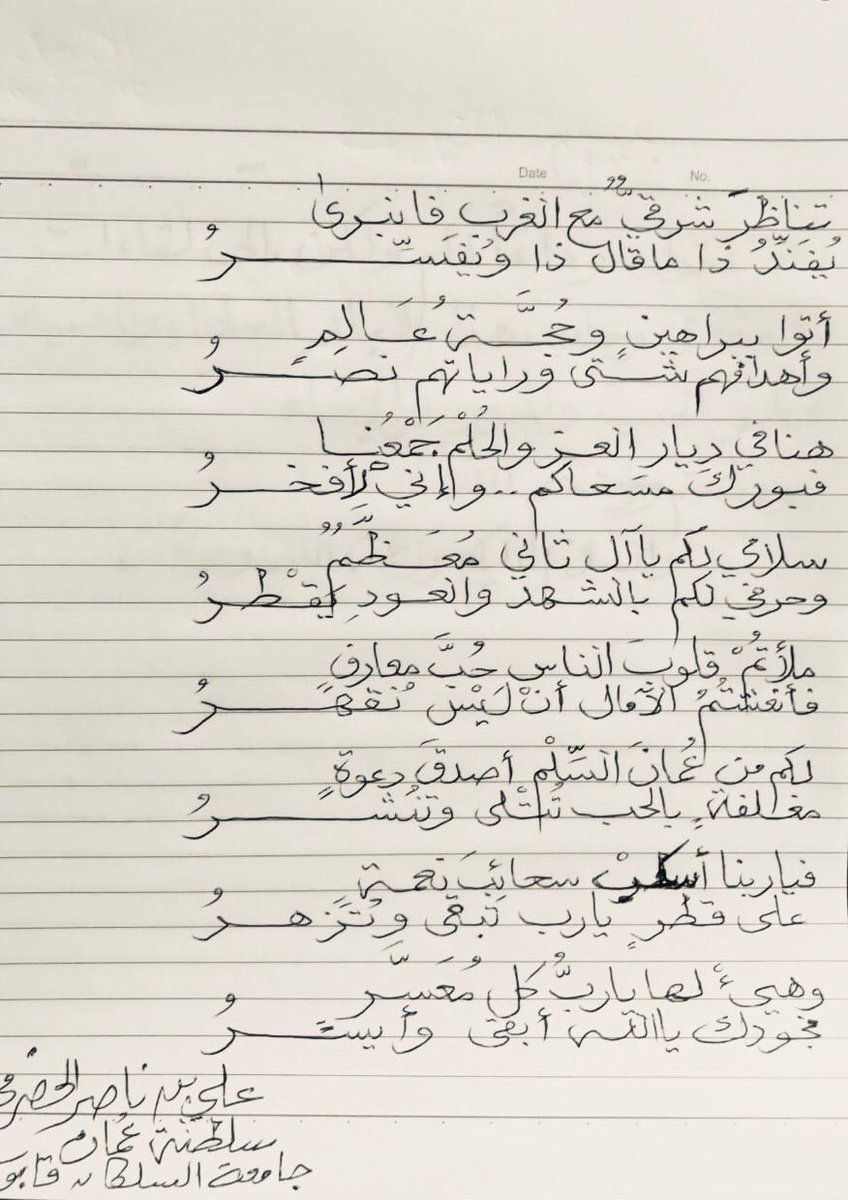 Date
No.
تناظرَ شرقيٌّ مع الغربِ فانبرى
يُفَنِّدُ ذا ما قال ذا ويُفسِّـــرُ
أتوا ببراهينٍ وحُجَّـةِ عَـالِمٍ
وأهدافهم شـتى وراياتهم نصـــرُ
هنا في ديار العـز والحُلْمُ جَمْعُنـا
فبوركَ مسعاكم .. وإنّي لأفخـــرُ
سلامي لكم يا آل ثاني مُعَـظَّمٌ
وحرفي لكم بالشهد والعودِ يقْطـرُ
ملأتُمْ قلوبَ الناس حُبَّ معارفٍ
فأنعشتُمُ الآمال أنْ لَيْسَ نُقهَـــرُ
لكم من عُمانَ السِّلْمِ أصدقَ دعوةٍ
مغـلفةٍ بالحب تُتْلى وتُنْشـــرُ
فيا ربنا أسكبْ سحائِبَ نعمـةٍ
على قطرٍ يا رب تبقى وتُزهـــرُ
وهيءْ لها يا ربُّ كل مُعَسَّـرٍ
فجودك يا الله أبقى وأيســـرُ
علي بن ناصر
سلطنة عُمان
جامعة السلطان